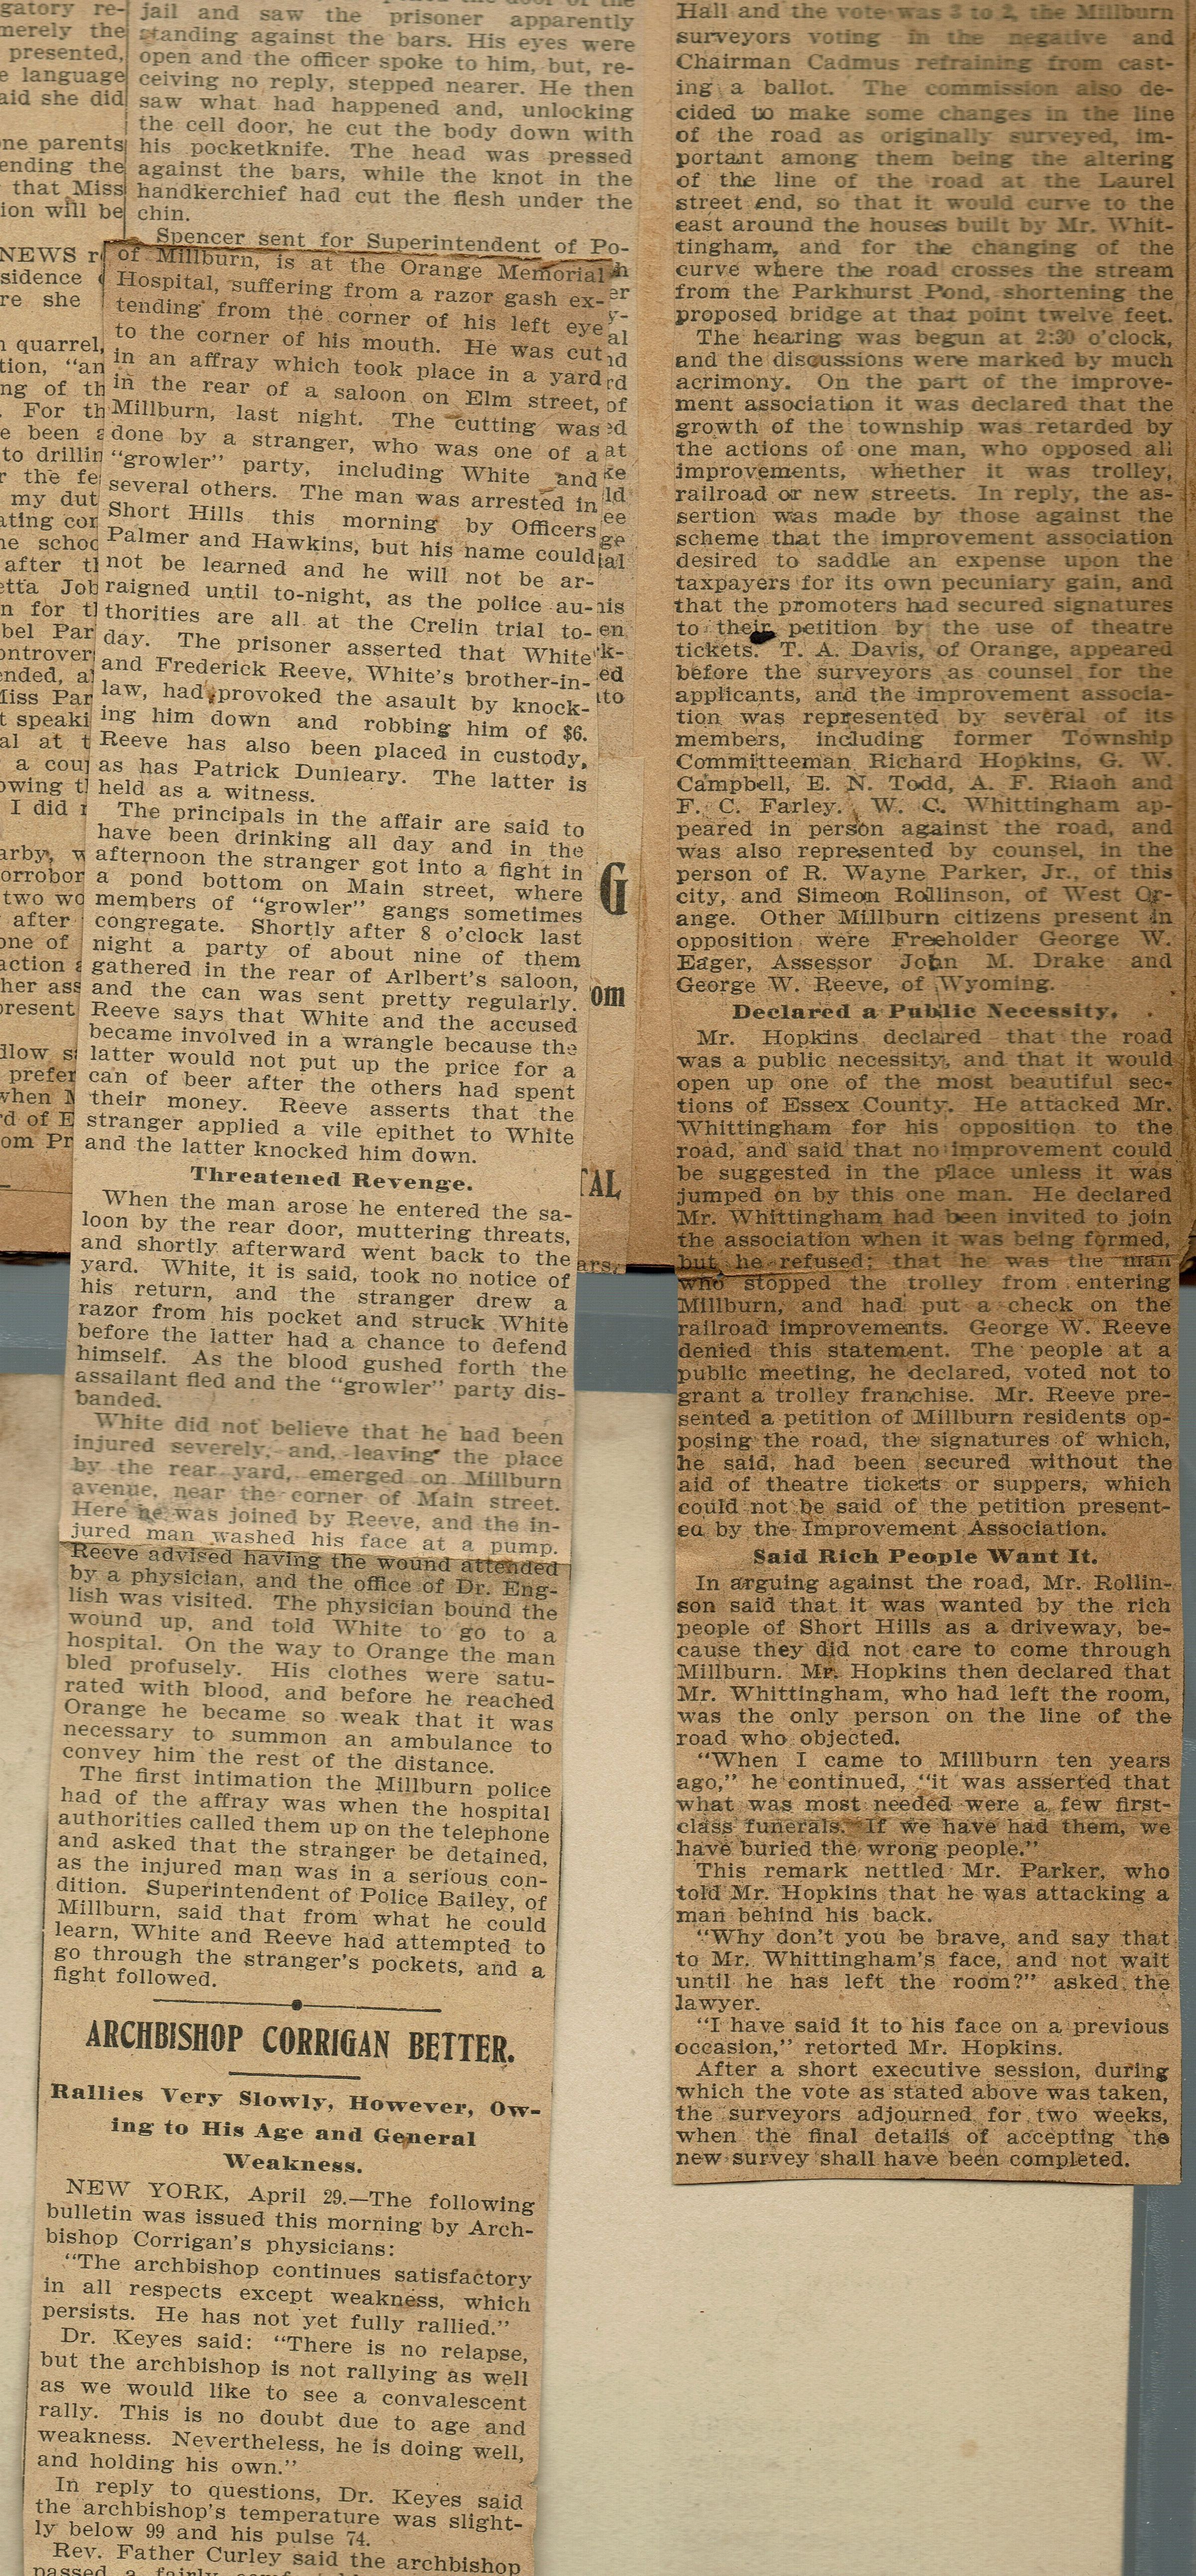 gatory re-
merely the
presented,
e language
aid she did
ne parents
ending the
that Miss
ion will be
NEWS r
sidence
re she
quarrel,
tion, "an
ng of th
. For th
e been a
to drillin
r the fe
my dut
ating cor
ne schoc
after t
etta Job
n for t
bel Par
ontrover
ended, a
Miss Par
t speaki
al at t
a cou
owing t
I did
arby, w
orrobor
two wo
after
one of
action a
her ass
present
dlow s
prefer
when M
rd of E
om Pr
jail and saw the prisoner apparently
standing against the bars. His eyes were
open and the officer spoke to him, but, re-
ceiving no reply, stepped nearer. He then
saw what had happened and, unlocking
the cell door, he cut the body down with
his pocketknife. The head was pressed
against the bars, while the knot in the
handkerchief had cut the flesh under the
chin.
Spencer sent for Superintendent of Po-
of Millburn, is at the Orange Memorial
Hospital, suffering from a razor gash ex-
tending from the corner of his left eye
to the corner of his mouth. He was cut
in an affray which took place in a yard
in the rear of a saloon on Elm street,
Millburn, last night. The cutting was
done by a stranger, who was one of a
"growler" party, including White and
several others. The man was arrested in
Short Hills this morning by Officers
Palmer and Hawkins, but his name could
not be learned and he will not be ar-
raigned until to-night, as the police au-
thorities are all at the Crelin trial to-
day. The prisoner asserted that White
and Frederick Reeve, White's brother-in-
law, had provoked the asault by knock-
ing him down and robbing him of $6.
Reeve has also been placed in custody,
as has Patrick Dunleary. The latter is
held as a witness.
The principals in the affair are said to
have been drinking all day and in the
afternoon the stranger got into a fight in
a pond bottom on Main street, where
members of "growler" gangs sometimes
congregate. Shortly after 8 o'clock last
night a party of about nine of them
gathered in the rear of Arlbert's saloon,
and the can was sent pretty regularly.
Reeve says that White and the accused
became involved in a wrangle because the
latter would not put up the price for a
can of beer after the others had spent
their money. Reeve asserts that the
stranger applied a vile epithet to White
and the latter knocked him down.
Threatened Revenge.
When the man arose he entered the sa-
loon by the rear door, muttering threats,
and shortly afterward went back to the
yard. White, it is said, took no notice of
his return, and the stranger drew a
razor from his pocket and struck White
before the latter had a chance to defend
himself. As the blood gushed forth the
assailant fled and the "growler" party dis-
banded.
White did not believe that he had been
injured severely, and, leaving the place
by the rear yard, emerged on Millburn
avenue, near the corner of Main street.
Here he was joined by Reeve, and the in-
jured man washed his face at a pump.
Reeve advised having the wound attended
by a physician, and the office of Dr. Eng-
lish was visited. The physician bound the
wound up, and told White to go to a
hospital. On the way to Orange the man
bled profusely. His clothes were satu-
rated with blood, and before he reached
Orange he became so weak that it was
necessary to summon an ambulance to
convey him the rest of the distance.
The first intimation the Millburn police
had of the affray was when the hospital
authorities called them up on the telephone
and asked that the stranger be detained,
as the injured man was in a serious con-
dition. Superintendent of Police Bailey, of
Millburn, said that from what he could
learn, White and Reeve had attempted to
go through the stranger's pockets, and a
fight followed.
ARCHBISHOP CORRIGAN BETTER.
Rallies Very Slowly, However, Ow-
ing to His Age and General
Weakness.
NEW YORK, April 29.—The following
bulletin was issued this morning by Arch-
bishop Corrigan's physicians:
"The archbishop continues satisfactory
in all respects except weakness, which
persists. He has not yet fully rallied."
Dr. Keyes said: "There is no relapse,
but the archbishop is not rallying as well
as we would like to see a convalescent
rally. This is no doubt due to age and
weakness. Nevertheless, he is doing well,
and holding his own."
In reply to questions, Dr. Keyes said
the archbishop's temperature was slight-
ly below 99 and his pulse 74.
Rev. Father Curley said the archbishop
passed a fairly
h
er
y-
al
nd
rd
of
ed
at
ke
ld
ee
ge
ial
his
en
k-
ed
to
G
om
TAL
ars.
Hall and the vote was 3 to 2, the Millburn
surveyors voting in the negative and
Chairman Cadmus refraining from cast-
ing a ballot. The commission also de-
cided to make some changes in the line
of the road as originally surveyed, im-
portant among them being the altering
of the line of the road at the Laurel
street end, so that it would curve to the
east around the houses built by Mr. Whit-
tingham, and for the changing of the
curve where the road crosses the stream
from the Parkhurst Pond, shortening the
proposed bridge at that point twelve feet.
The hearing was begun at 2:30 o'clock,
and the discussions were marked by much
acrimony. On the part of the improve-
ment association it was declared that the
growth of the township was retarded by
the actions of one man, who opposed all
improvements, whether it was trolley,
railroad or new streets. In reply, the as-
sertion was made by those against the
scheme that the improvement association
desired to saddle an expense upon the
taxpayers for its own pecuniary gain, and
that the promoters had secured signatures
to their petition by the use of theatre
tickets. T. A. Davis, of Orange, appeared
before the surveyors as counsel for the
applicants, and the improvement associa-
tion was represented by several of its
members, including former Township
Committeeman Richard Hopkins, G. W.
Campbell, E. N. Todd, A. F. Riach and
F. C. Farley. W. C. Whittingham ap-
peared in person against the road, and
was also represented by counsel, in the
person of R. Wayne Parker, Jr., of this
city, and Simeon Rollinson, of West Or-
ange. Other Millburn citizens present in
opposition were Freeholder George W.
Eager, Assessor John M. Drake and
George W. Reeve, of Wyoming.
Declared a Public Necessity.
Mr. Hopkins declared that the road
was a public necessity, and that it would
open up one of the most beautiful sec-
tions of Essex County. He attacked Mr.
Whittingham for his opposition to the
road, and said that no improvement could
be suggested in the place unless it was
jumped on by this one man. He declared
Mr. Whittingham had been invited to join
the association when it was being formed,
but he refused; that he was the man
who stopped the trolley from entering
Millburn, and had put a check on the
railroad improvements. George W. Reeve
denied this statement. The people at a
public meeting, he declared, voted not to
grant a trolley franchise. Mr. Reeve pre-
sented a petition of Millburn residents op-
posing the road, the signatures of which,
he said, had been secured without the
aid of theatre tickets or suppers, which
could not be said of the petition present-
ed by the Improvement Association.
Said Rich People Want It.
In arguing against the road, Mr. Rollin-
son said that it was wanted by the rich
people of Short Hills as a driveway, be-
cause they did not care to come through
Millburn. Mr. Hopkins then declared that
Mr. Whittingham, who had left the room,
was the only person on the line of the
road who objected.
"When I came to Millburn ten years
ago," he continued, "it was asserted that
what was most needed were a few first-
class funerals. If we have had them, we
have buried the wrong people."
This remark nettled Mr. Parker, who
told Mr. Hopkins that he was attacking a
man behind his back.
"Why don't you be brave, and say that
to Mr. Whittingham's face, and not wait
until he has left the room?" asked the
lawyer.
"I have said it to his face on a previous
occasion," retorted Mr. Hopkins.
After a short executive session, during
which the vote as stated above was taken,
the surveyors adjourned for two weeks,
when the final details of accepting the
new survey shall have been completed.